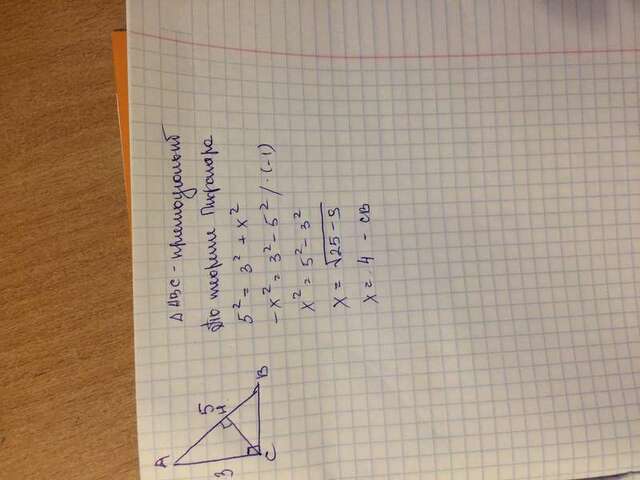 Δ ABC - прямоугольный
По теореме Пифагора
5² = 3² + x²
-x² = 3² - 5² / ·(-1)
x² = 5² - 3²
x = √25 - 9
x = 4 - CB
A
5
H
B
3
C